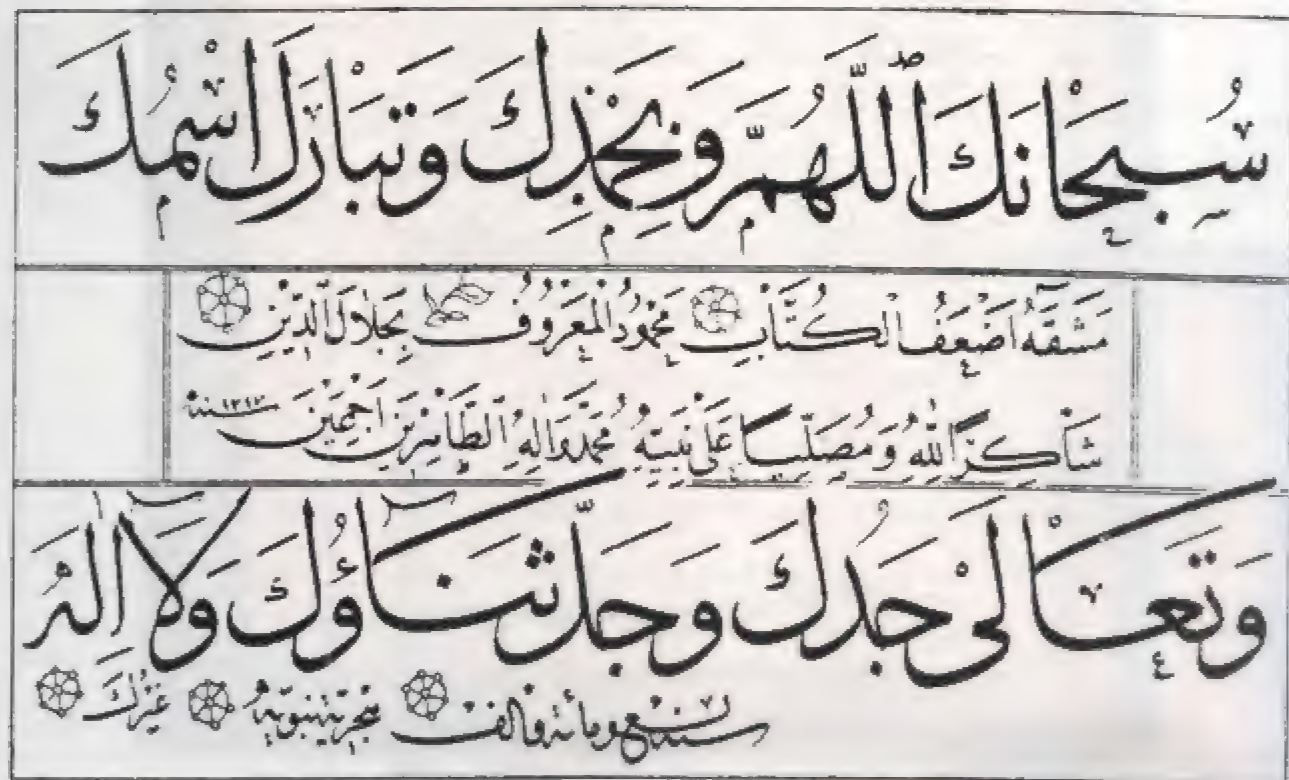 سُبْحَانَكَ اللَّهُمَّ وَبِحَمْدِكَ وَتَبَارَكَ اسْمُكَ
مَشَقَهُ اَضْعَفُ الْكُتَّابِ مَحْمُودُ الْمَعْرُوفُ بِجَلَالِ الدِّينِ
شَاكِرًا لِلّهِ وَمُصَلِّيًا عَلَى نَبِيِّهِ مُحَمَّدٍ وَآلِهِ الطَّاهِرِينَ اَجْمَعِينَ سنة
وَتَعَالَى جَدُّكَ وَجَلَّ ثَنَاؤُكَ وَلَا اِلَهَ
سنة تسع ومائة والف هجرية نبوية غَيْرُكَ